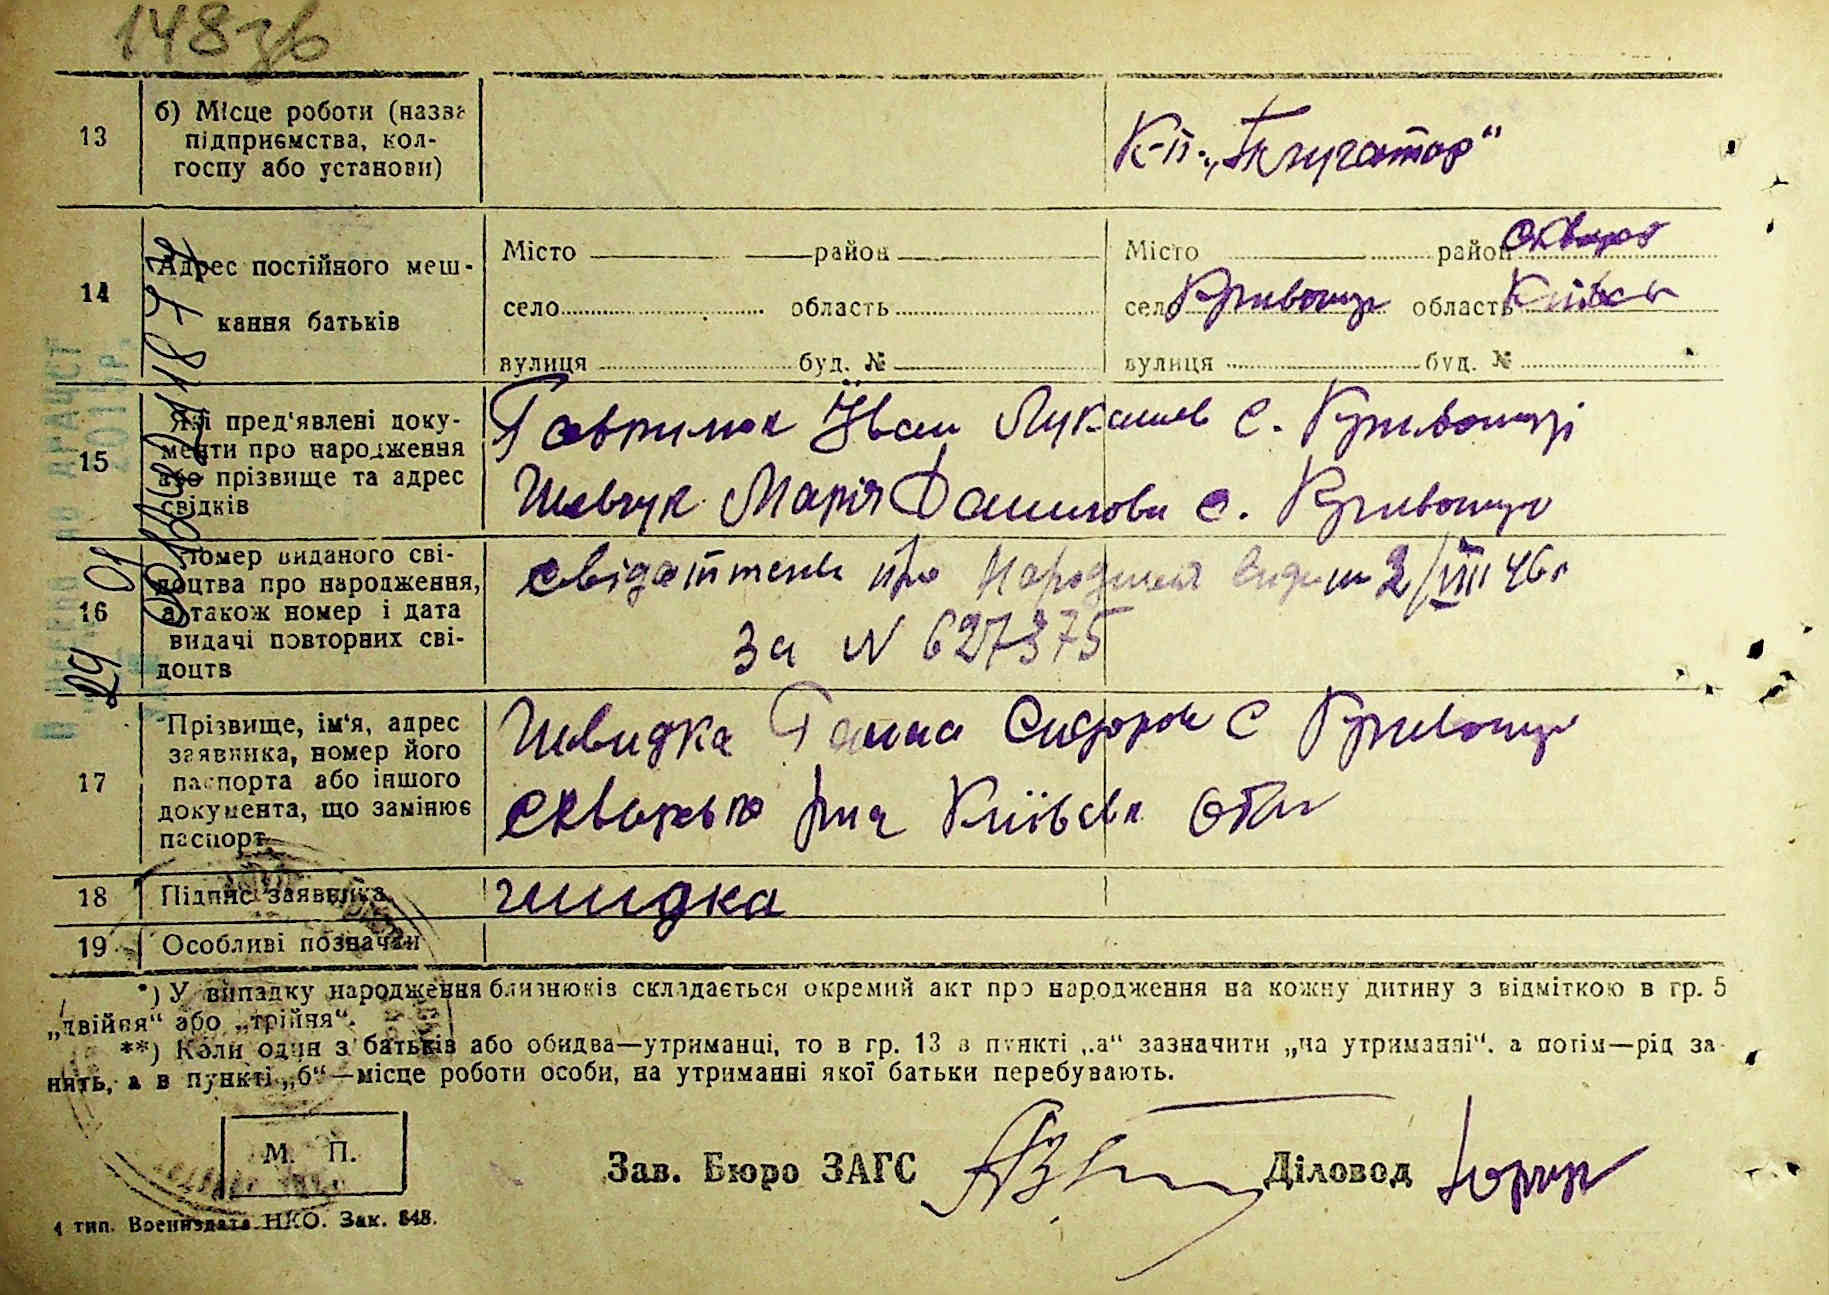 148зв
13 б) Місце роботи (назва
підприємства, кол-
госпу або установи)
К-п. „Плугатар"
14 Адрес постійного меш-
кання батьків
Місто район Місто район Сквирс
село область село Кривошиї область Київськ
вулиця буд. № вулиця буд. №
15 Які пред'явлені доку-
менти про народження
або прізвище та адрес
свідків
Гаврилюк Іван Лукашев с. Кривошиї
Шевчук Марія Данилова с. Кривошиї
16 Номер виданого сві-
доцтва про народження,
а також номер і дата
видачі повторних сві-
доцтв
про 2/VIII 46г
за N 627375
17 Прізвище, ім'я, адрес
заявника, номер його
паспорта або іншого
документа, що замінює
паспорт
Швидка Ганна Сидоров с Кривошиї
Київськ обл
18 Підпис заявника
швидка
19 Особливі позначки
*) У випадку народження близнюків складається окремий акт про народження на кожну дитину з відміткою в гр. 5
„двійня" або „трійня".
**) Коли один з батьків або обидва—утриманці, то в гр. 13 в пункті „а" зазначити „на утриманні", а потім—рід за-
нять, а в пункті „б"—місце роботи особи, на утриманні якої батьки перебувають.
М. П.
Зав. Бюро ЗАГС Діловод
4 тип. Воениздата НКО. Зак. 848.